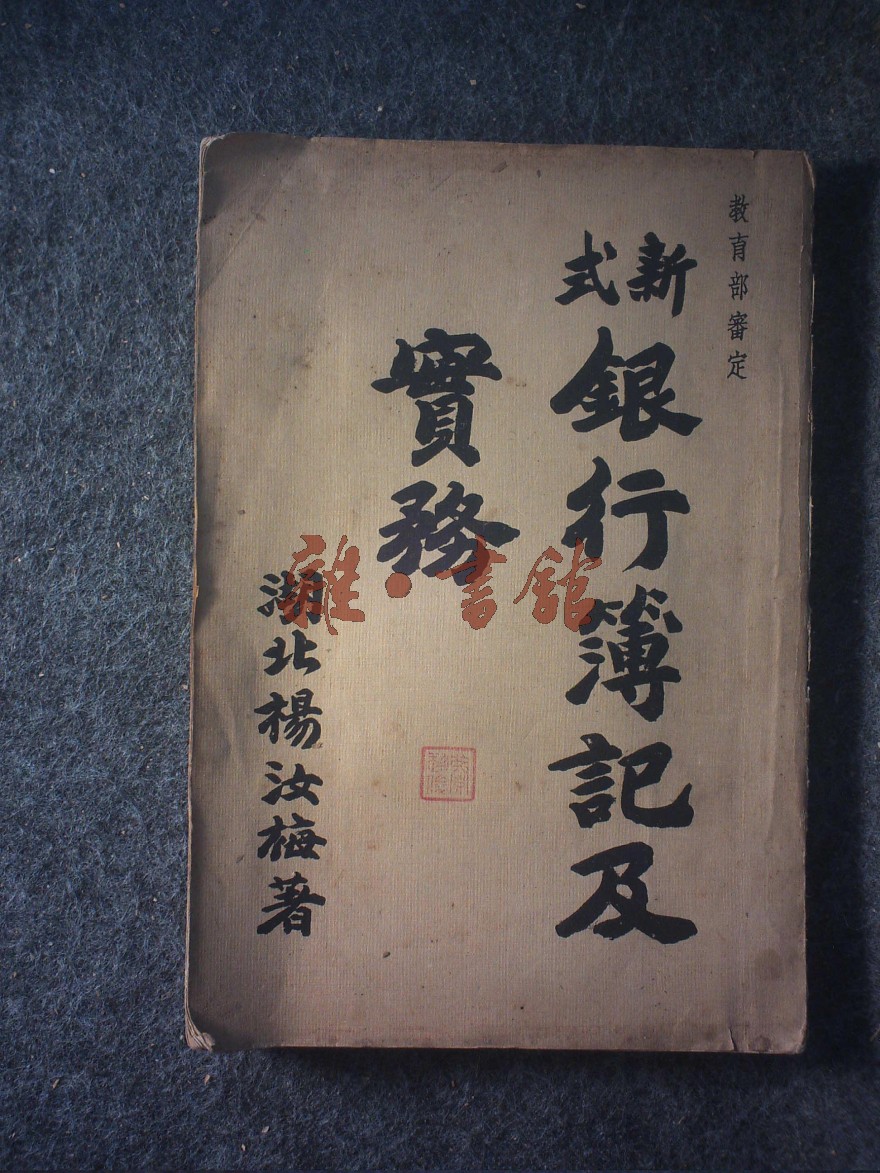 教育部審定
新式
銀行簿記及
實務
湖北楊汝梅著
雜·書館